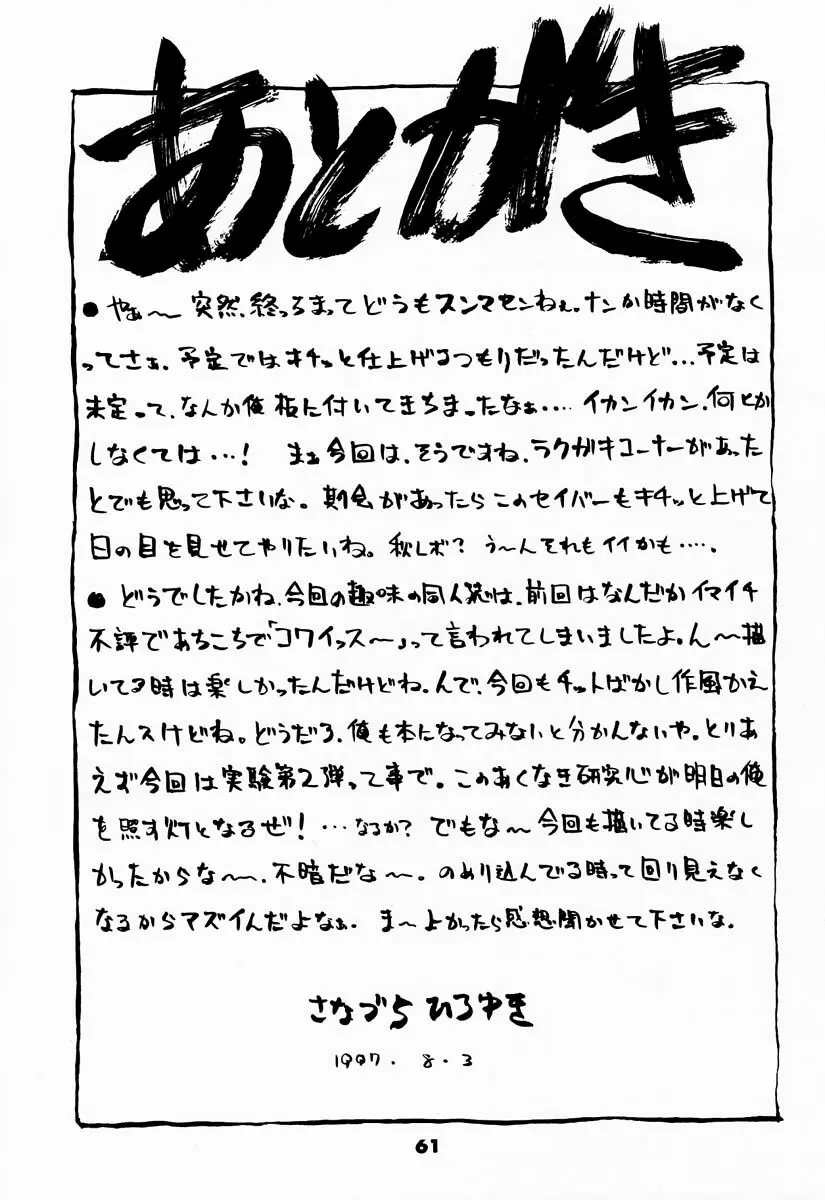 あとがき
● やぁ〜 突然、終っちまってどうもスンマセンねぇ。ナンか時間がなく
ってさぁ、予定ではキチッと仕上げるつもりだったんだけど…予定は
未定って、なんか俺板に付いてきちまったなぁ…. イカンイカン、何とか
しなくては…! まぁ今回は、そうですね、ラクガキコーナーがあった
とでも思って下さいな。期会があったらこのセイバーもキチッと上げて
日の目を見せてやりたいね。秋レボ? う〜んそれもイイかも….
● どうでしたかね、今回の趣味の同人誌は、前回はなんだかイマイチ
不評であちこちで「コワイっス〜」って言われてしまいましたよ。ん〜描
いてる時は楽しかったんだけどね。んで、今回もチットばかし作風かえ
たんスけどね。どうだろ、俺も本になってみないと分かんないや。とりあ
えず今回は実験第2弾って事で。このあくなき研究心が明日の俺
を照す灯となるぜ! …なるか? でもな〜今回も描いてる時楽し
かったからな〜、不暗だな〜。のめり込んでる時って回り見えなく
なるからマズイんだよなぁ. ま〜よかったら感想聞かせて下さいな。
さなづら ひろゆき
1997. 8.3
61